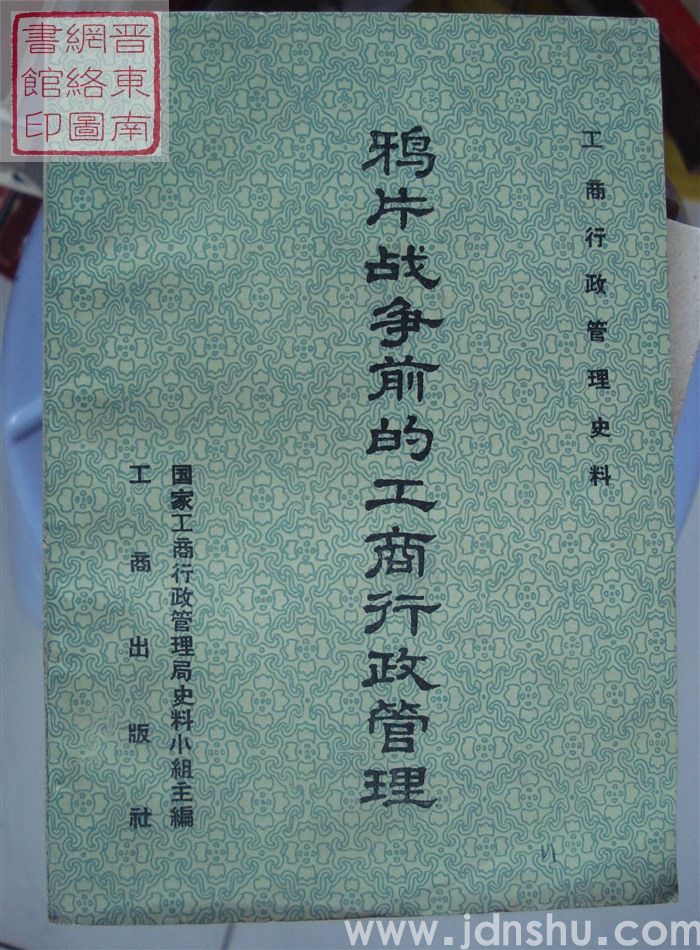 工商行政管理史料
鸦片战争前的工商行政管理
国家工商行政管理局史料小组主编
工商出版社
晋東南
網絡圖
書館印
www.jdnshu.com